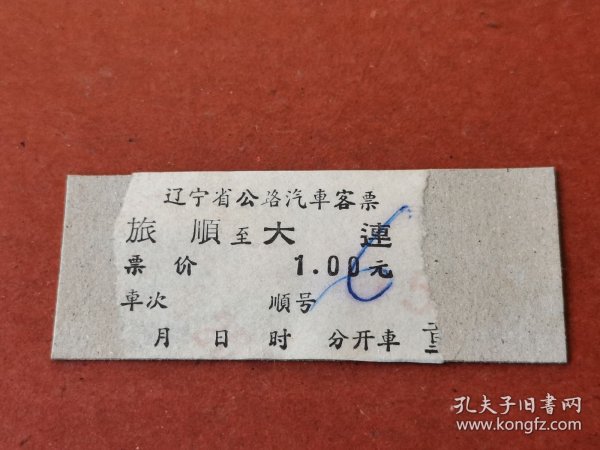 辽宁省公路汽車客票
旅順至大連
票价 1.00元
車次 順号
月 日 时 分开車
孔夫子旧書网
www.kongfz.com